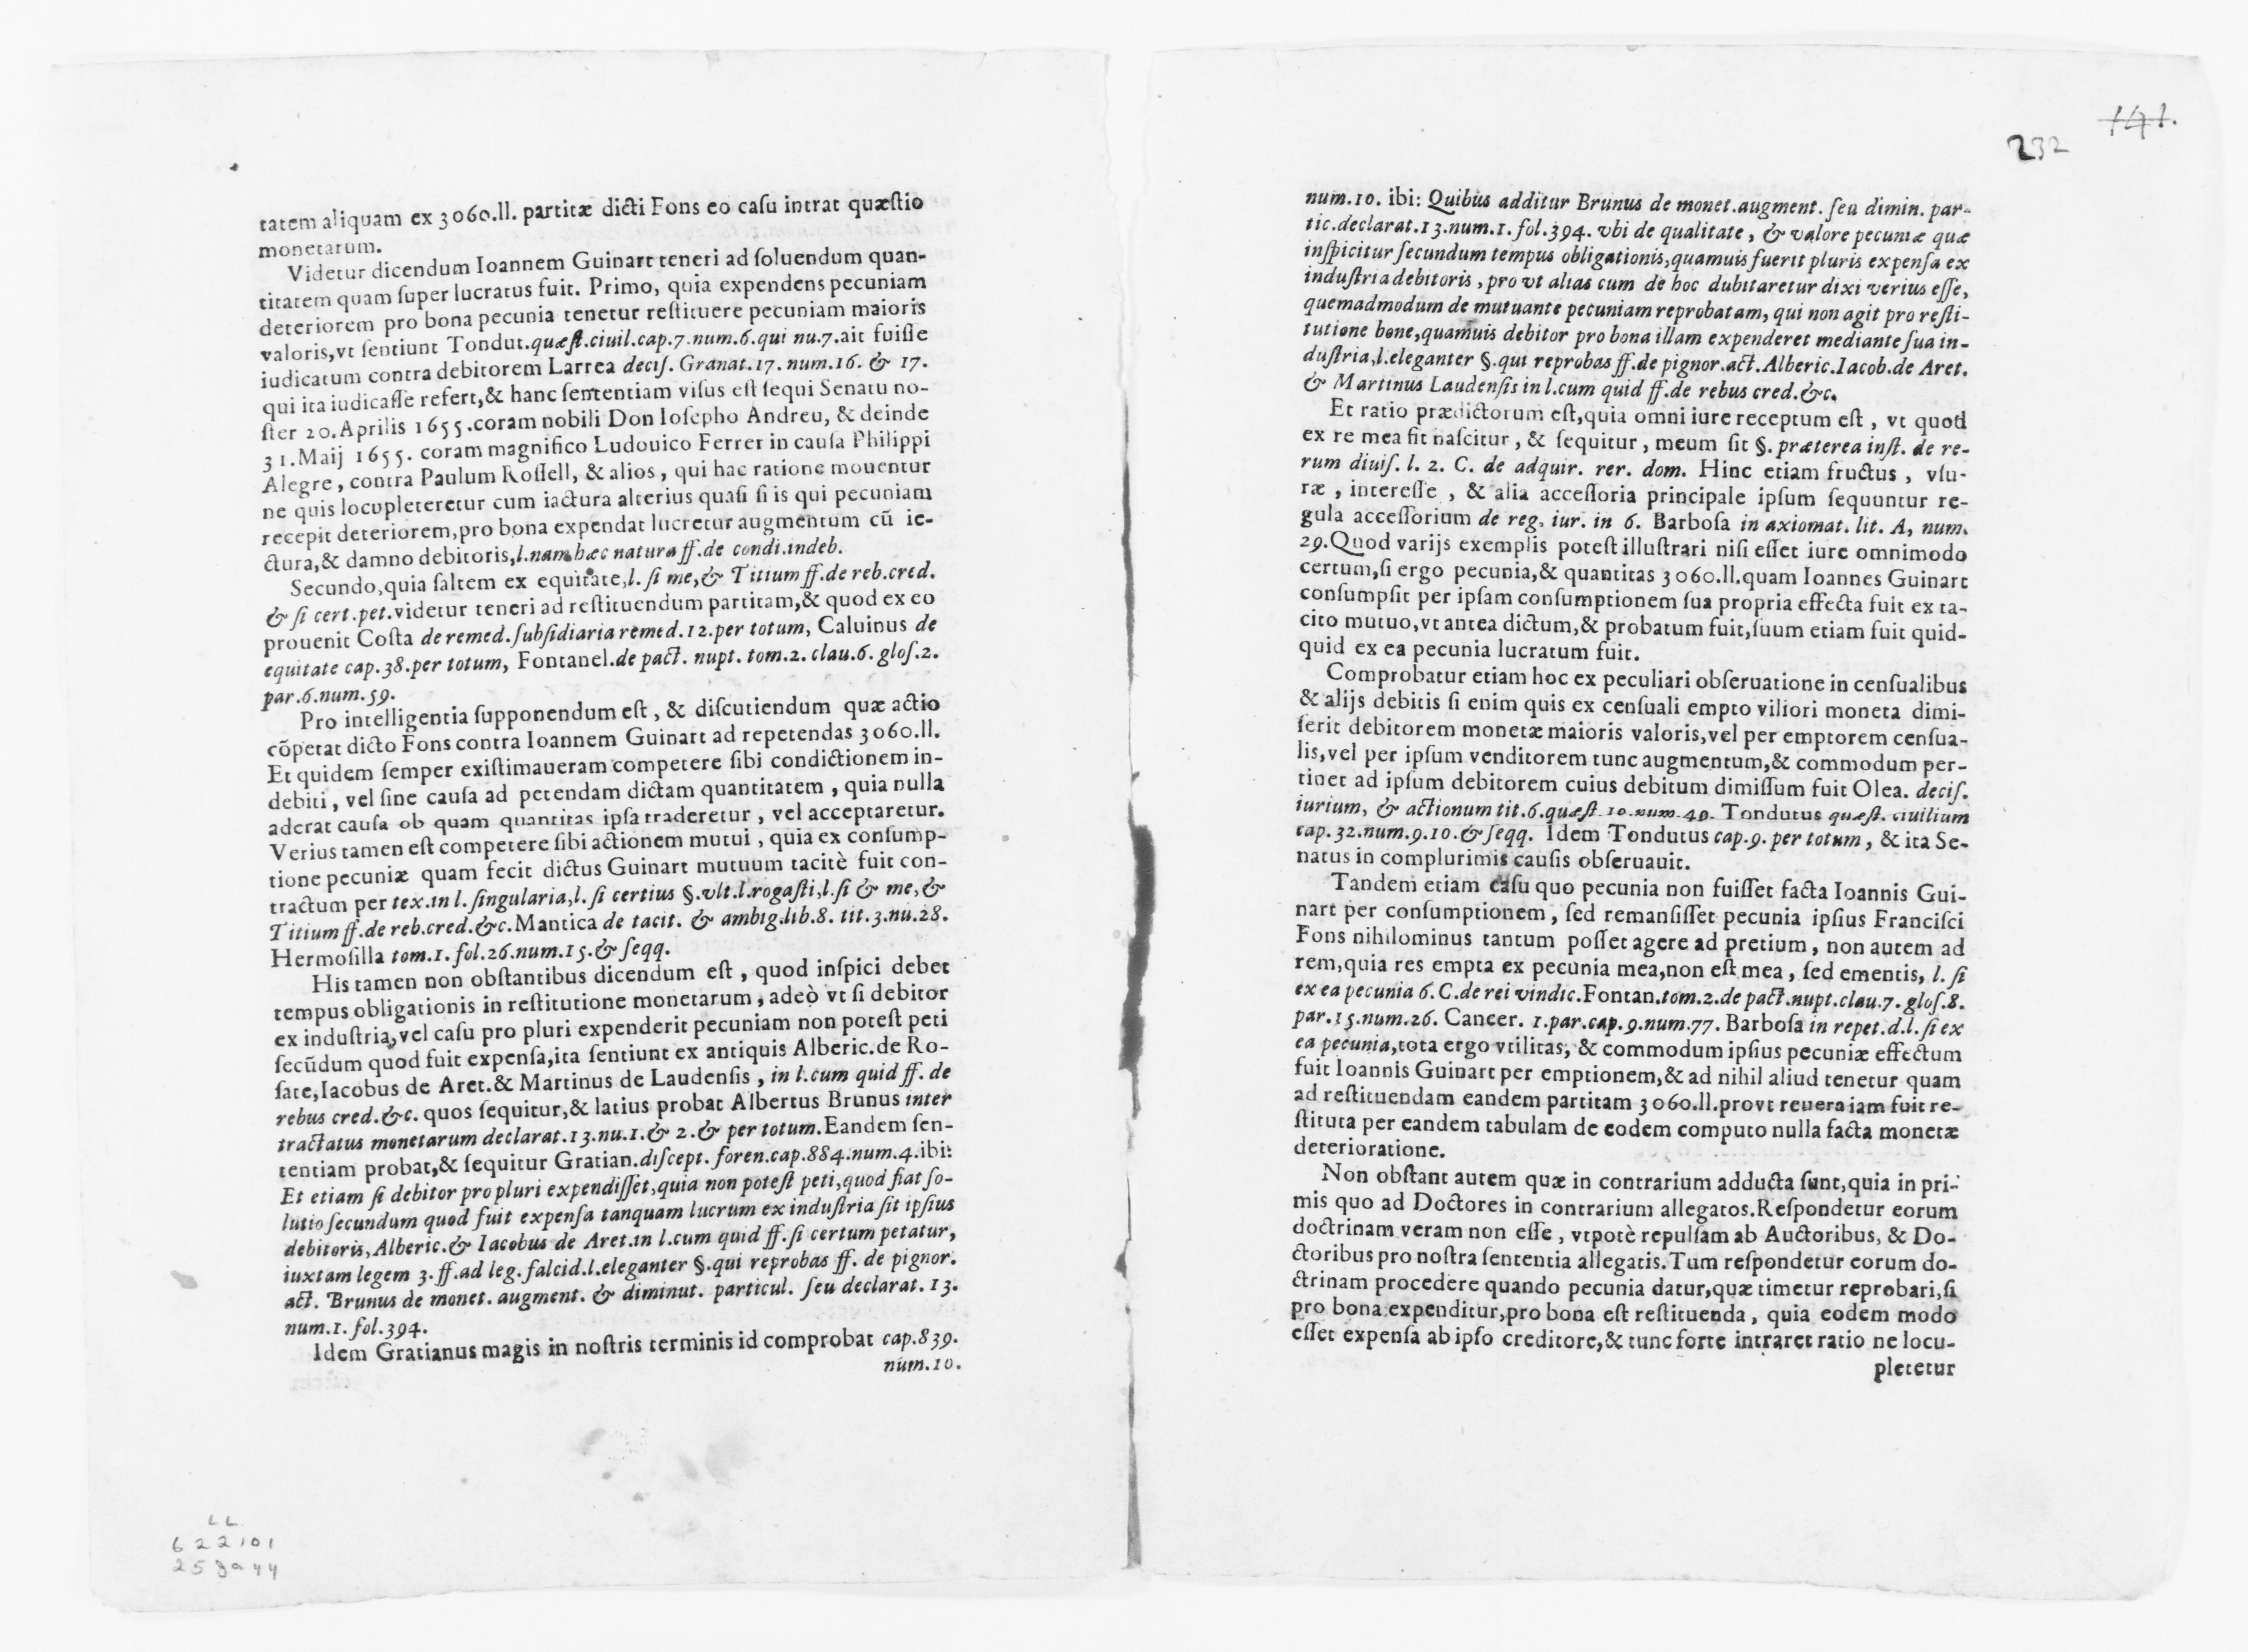 tatem aliquam ex 3060.ll. partitæ dicti Fons eo caſu intrat quæſtio
monetarum.
Videtur dicendum Ioannem Guinart teneri ad ſoluendum quan-
titatem quam ſuper lucratus fuit. Primo, quia expendens pecuniam
deteriorem pro bona pecunia tenetur reſtituere pecuniam maioris
valoris,vt ſentiunt Tondut.quæſt.ciuil.cap.7.num.6.qui nu.7.ait fuiſſe
iudicatum contra debitorem Larrea deciſ. Granat.17. num.16. & 17.
qui ita iudicaſſe refert,& hanc ſententiam viſus eſt ſequi Senatu no-
ſter 20.Aprilis 1655.coram nobili Don Ioſepho Andreu, & deinde
31.Maij 1655. coram magnifico Ludouico Ferrer in cauſa Philippi
Alegre, contra Paulum Roſſell, & alios, qui hac ratione mouentur
ne quis locupleteretur cum iactura alterius quaſi ſi is qui pecuniam
recepit deteriorem,pro bona expendat lucretur augmentum cū ie-
ctura,& damno debitoris,l.nam hæc natura ff.de condi.indeb.
Secundo,quia ſaltem ex equitate,l. ſi me,& Titium ff.de reb.cred.
& ſi cert.pet.videtur teneri ad reſtituendum partitam,& quod ex eo
prouenit Coſta de remed.ſubſidiaria remed.12.per totum, Caluinus de
equitate cap.38.per totum, Fontanel.de pact. nupt. tom.2. clau.6. gloſ.2.
par.6.num.59.
Pro intelligentia ſupponendum eſt, & diſcutiendum quæ actio
cõpetat dicto Fons contra Ioannem Guinart ad repetendas 3060.ll.
Et quidem ſemper exiſtimaueram competere ſibi condictionem in-
debiti, vel ſine cauſa ad petendam dictam quantitatem, quia nulla
aderat cauſa ob quam quantitas ipſa traderetur, vel acceptaretur.
Verius tamen eſt competere ſibi actionem mutui, quia ex conſump-
tione pecuniæ quam fecit dictus Guinart mutuum tacitè fuit con-
tractum per tex.in l. ſingularia,l. ſi certius §.vlt.l.rogaſti,l.ſi & me,&
Titium ff.de reb.cred.&c.Mantica de tacit. & ambig.lib.8. tit.3.nu.28.
Hermoſilla tom.1. fol.26.num.15.& ſeqq.
His tamen non obſtantibus dicendum eſt, quod inſpici debet
tempus obligationis in reſtitutione monetarum, adeò vt ſi debitor
ex induſtria,vel caſu pro pluri expenderit pecuniam non poteſt peti
ſecũdum quod fuit expenſa,ita ſentiunt ex antiquis Alberic.de Ro-
ſate,Iacobus de Aret.& Martinus de Laudenſis, in l.cum quid ff. de
rebus cred.&c. quos ſequitur,& latius probat Albertus Brunus inter
tractatus monetarum declarat.13.nu.1.& 2.& per totum.Eandem ſen-
tentiam probat,& ſequitur Gratian.diſcept. foren.cap.884.num.4.ibi:
Et etiam ſi debitor pro pluri expendiſſet,quia non poteſt peti,quod fiat ſo-
lutio ſecundum quod fuit expenſa tanquam lucrum ex induſtria ſit ipſius
debitoris,Alberic.& Iacobus de Aret.in l.cum quid ff.ſi certum petatur,
iuxtam legem 3.ff.ad leg.falcid.l.eleganter §.qui reprobas ff. de pignor.
act. Brunus de monet. augment. & diminut. particul. ſeu declarat.13.
num.1. fol.394.
Idem Gratianus magis in noſtris terminis id comprobat cap.839.
num.10.
232
141.
num.10. ibi: Quibus additur Brunus de monet.augment. ſeu dimin. par-
tic.declarat.13.num.1. fol.394. vbi de qualitate, & valore pecuniæ quæ
inſpicitur ſecundum tempus obligationis,quamuis fuerit pluris expenſa ex
induſtria debitoris, pro vt alias cum de hoc dubitaretur dixi verius eſſe,
quemadmodum de mutuante pecuniam reprobatam, qui non agit pro reſti-
tutione bone,quamuis debitor pro bona illam expenderet mediante ſua in-
duſtria,l.eleganter §.qui reprobas ff.de pignor.act.Alberic.Iacob.de Aret.
& Martinus Laudenſis in l.cum quid ff.de rebus cred.&c.
Et ratio prædictorum eſt,quia omni iure receptum eſt, vt quod
ex re mea fit naſcitur, & ſequitur, meum ſit §. præterea inſt. de re-
rum diuiſ. l. 2. C. de adquir. rer. dom. Hinc etiam fructus, vſu-
ræ, intereſſe, & alia acceſſoria principale ipſum ſequuntur re-
gula acceſſorium de reg. iur. in 6. Barboſa in axiomat. lit. A, num.
29.Quod varijs exemplis poteſt illuſtrari niſi eſſet iure omnimodo
certum,ſi ergo pecunia,& quantitas 3060.ll.quam Ioannes Guinart
conſumpſit per ipſam conſumptionem ſua propria effecta fuit ex ta-
cito mutuo,vt antea dictum,& probatum fuit,ſuum etiam fuit quid-
quid ex ea pecunia lucratum fuit.
Comprobatur etiam hoc ex peculiari obſeruatione in cenſualibus
& alijs debitis ſi enim quis ex cenſuali empto viliori moneta dimi-
ſerit debitorem monetæ maioris valoris,vel per emptorem cenſua-
lis,vel per ipſum venditorem tunc augmentum,& commodum per-
tinet ad ipſum debitorem cuius debitum dimiſſum fuit Olea. deciſ.
iurium, & actionum tit.6.quæſt.10.num.49. Tondutus quæſt. ciuilium
cap. 32.num.9.10.& ſeqq. Idem Tondutus cap.9. per totum, & ita Se-
natus in complurimis cauſis obſeruauit.
Tandem etiam caſu quo pecunia non fuiſſet facta Ioannis Gui-
nart per conſumptionem, ſed remanſiſſet pecunia ipſius Franciſci
Fons nihilominus tantum poſſet agere ad pretium, non autem ad
rem,quia res empta ex pecunia mea,non eſt mea, ſed ementis, l. ſi
ex ea pecunia 6. C.de rei vindic.Fontan.tom.2.de pact.nupt.clau.7. gloſ.8.
par.15.num.26. Cancer. 1.par.cap.9.num.77. Barboſa in repet.d.l. ſi ex
ea pecunia,tota ergo vtilitas, & commodum ipſius pecuniæ effectum
fuit Ioannis Guinart per emptionem,& ad nihil aliud tenetur quam
ad reſtituendam eandem partitam 3060.ll.provt reuera iam fuit re-
ſtituta per eandem tabulam de eodem computo nulla facta monetæ
deterioratione.
Non obſtant autem quæ in contrarium adducta ſunt,quia in pri-
mis quo ad Doctores in contrarium allegatos.Reſpondetur eorum
doctrinam veram non eſſe, vtpotè repulſam ab Auctoribus, & Do-
ctoribus pro noſtra ſententia allegatis.Tum reſpondetur eorum do-
ctrinam procedere quando pecunia datur,quæ timetur reprobari,ſi
pro bona expenditur,pro bona eſt reſtituenda, quia eodem modo
eſſet expenſa ab ipſo creditore,& tunc forte intraret ratio ne locu-
pletetur
LL
622101